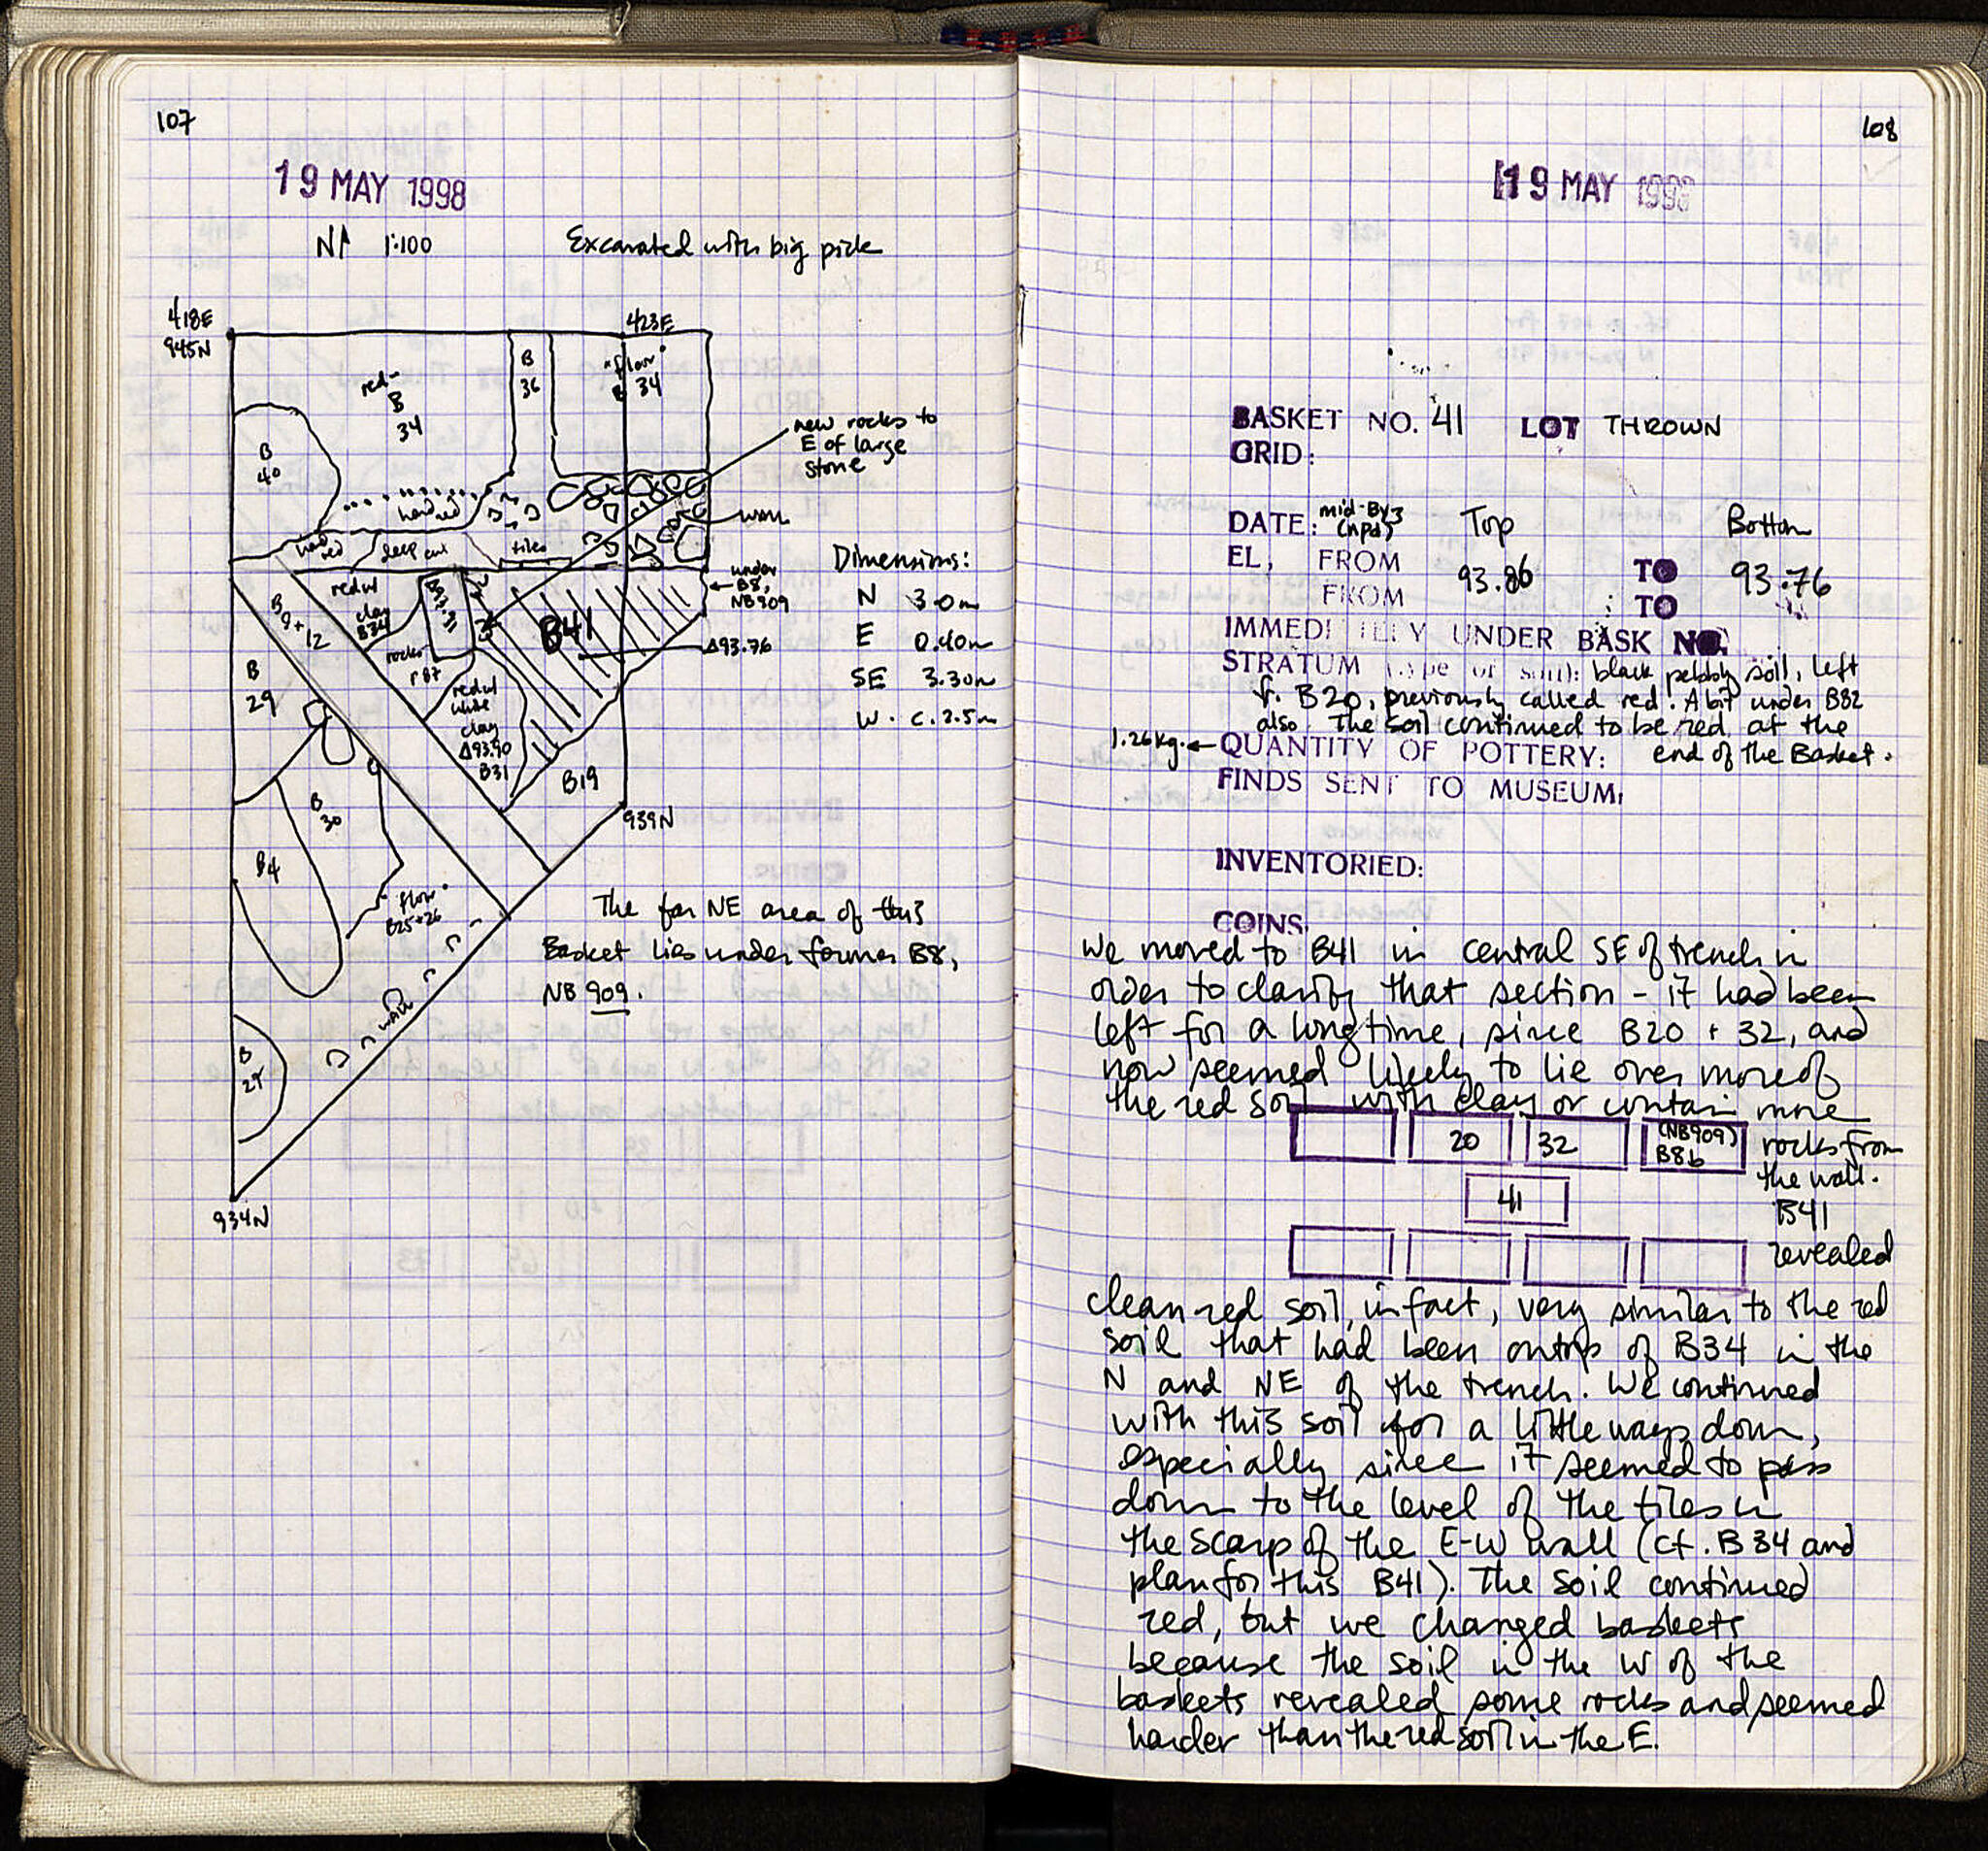 107
19 MAY 1998
N 1:100 Excavated with big pick
418E
945N
423E
B
36
"floor"
B 34
red-
B
34
B
40
new rocks to
E of large
stone
hard
red
wall
hard
red
deep cut
tiles
under
B8,
NB909
Dimensions:
N 3.0m
E 0.40m
SE 3.30m
W. c. 2.5m
B
9+12
red w/
clay
B34
B41
Δ93.76
rocks
B
29
red w/
white
clay
Δ93.90
B31
B19
939N
B
30
B4
"floor"
B25+26
wall
B
934N
The far NE area of this
Basket lies under former B8,
NB 909.
108
19 MAY 1998
BASKET NO. 41 LOT THROWN
GRID:
DATE: mid-Byz
(npd) Top Bottom
EL, FROM 93.86 TO 93.76
FROM TO
IMMEDIATELY UNDER BASK NO.
STRATUM (type of soil): black pebbly soil, left
fr. B20, previously called red. A bit under B32
also. The soil continued to be red at the
1.26kg. ← QUANTITY OF POTTERY: end of the Basket.
FINDS SENT TO MUSEUM:
INVENTORIED:
COINS:
We moved to B41 in central SE of trench in
order to clarify that section - it had been
left for a long time, since B20 + 32, and
now seemed likely to lie over more of
the red soil with clay or contain more
20 32 (NB909)
B8b rocks from
the wall.
41 B41
revealed
clean red soil, in fact, very similar to the red
soil that had been on top of B34 in the
N and NE of the trench. We continued
with this soil for a little ways down,
especially since it seemed to pass
down to the level of the tiles in
the scarp of the E-W wall (cf. B34 and
plan for this B41). The soil continued
red, but we changed baskets
because the soil in the W of the
baskets revealed some rocks and seemed
harder than the red soil in the E.